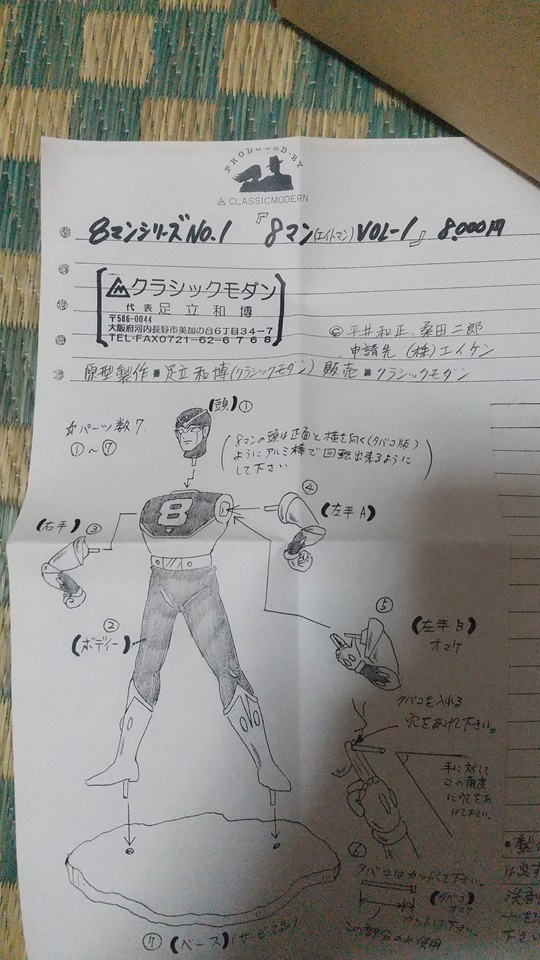 PRODUCED-BY
CLASSICMODERN
8マンシリーズNO.1 『8マン(エイトマン)VOL-1』 8.000円
クラシックモダン
代表 足立和博
〒586-0044
大阪府河内長野市美加の台6丁目34-7
TEL・FAX0721-62-6768
© 平井和正、桑田二郎
申請先 (株)エイケン
原型製作■足立和博(クラシックモダン) 販売■クラシックモダン
(頭)①
☆パーツ数7.
①～⑦
(8マンの頭は正面と横を向く(タバコ版)
ようにアルミ棒で回転出来るように
して下さい)
8
④
(左手A)
(右手)③
⑤
(左手B)
オマケ
②
(ボディー)
タバコを入れる
穴をあけて下さい。
手に対して
この角度
に穴をあ
けて下さい。
⑥
タバコはカットして下さい。
(タバコ)
オマケ
カットして下さい。
この部分のみ使用
⑦(ベース)(サービス品)